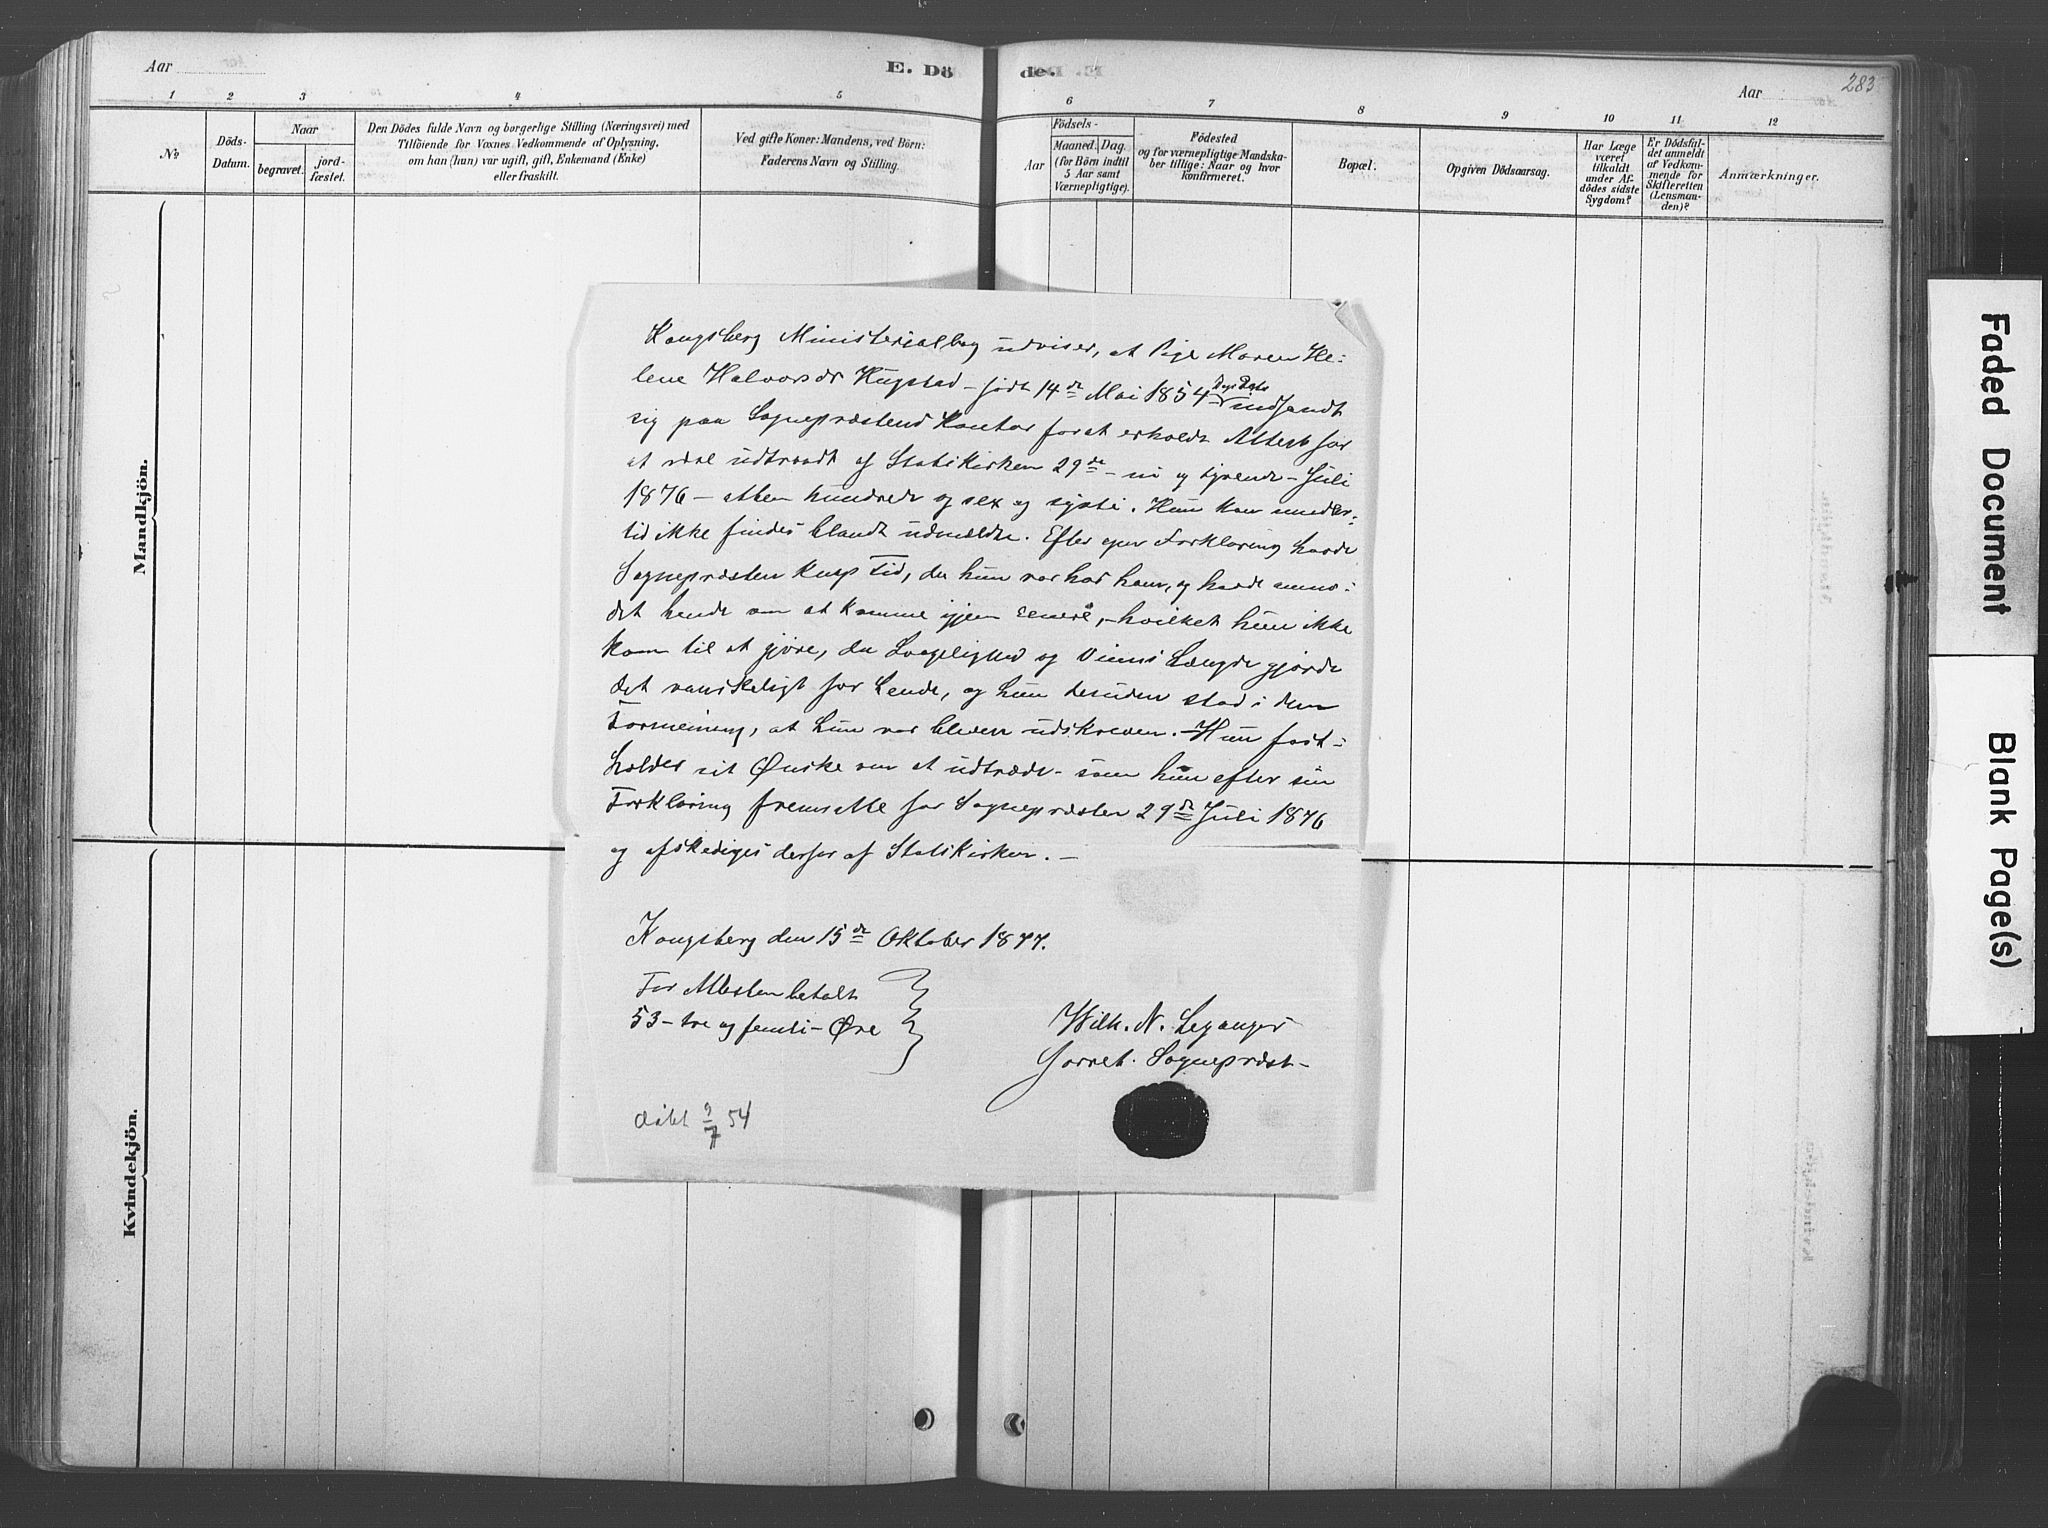 Aar
E. Dö
de.
Aar
283
1 2 3 4 5
6 7 8 9 10 11 12
№
Döds-
Datum.
Naar
begravet.
jord-
fæstet.
Den Dödes fulde Navn og borgerlige Stilling (Næringsvei) med
Tilföiende for Voxnes Vedkommende af Oplysning,
om han (hun) var ugift, gift, Enkemand (Enke)
eller fraskilt.
Ved gifte Koner: Mandens, ved Börn:
Faderens Navn og Stilling.
Födsels-
Aar
Maaned. Dag.
(for Börn indtil
5 Aar samt
Værnepligtige).
Födested
og for værnepligtige Mandska-
ber tillige: Naar og hvor
konfirmeret.
Bopæl.
Opgiven Dödsaarsag.
Har Læge
været
tilkaldt
under Af-
dödes sidste
Sygdom?
Er Dödsfal-
det anmeldt
af Vedkom-
mende for
Skifteretten
(Lensman-
den)?
Anmærkninger.
Mandkjön.
Kvindekjön.
Kongsberg Ministerialbog udviser, at Pige Maren He-
lene Halvorsdr Hugstad – født 14de Mai 1854 indfandt
sig paa Sognepræstens Kontor for at erholde Attest for
at være udtraadt af Statskirken 29de – ni og tyvende – Juli
1876 – atten hundrede og sex og sytti. Hun kan imider-
tid ikke findes blandt udmeldte. Efter egen Forklaring havde
Sognepræsten knap Tid, da hun var hos ham, og havde anmo-
det hende om at komme igjen senere, – hvilket hun ikke
kom til at gjøre, da Leilighed og Veiens Længde gjorde
det vanskeligt for hende, og hun desuden stod i den
Formening, at hun var bleven udskreven. – Hun fast-
holder sit Ønske om at udtræde – som hun efter sin
Forklaring fremsatte for Sognepræsten 29de Juli 1876
og afskediges derfor af Statskirken. –
Kongsberg den 15de Oktober 1877.
For Attesten betalt
53 – tre og femti – Øre
Wilh. N. Leganger
Sognepræst –
døbt 9/7 54
Faded Document
Blank Page(s)